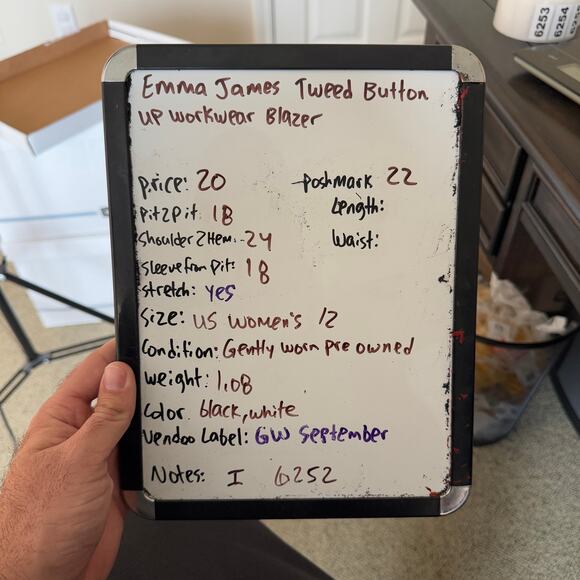 Emma James Tweed Button
up workwear Blazer
price: 20
poshmark 22
Pit2Pit: 18
Length:
Shoulder2Hem: 24
Waist:
Sleeve from Pit: 18
stretch: yes
Size: US women's 12
Condition: Gently worn pre owned
weight: 1.08
Color: black, white
Vendoo Label: GW September
Notes: I 6252
6253
6254